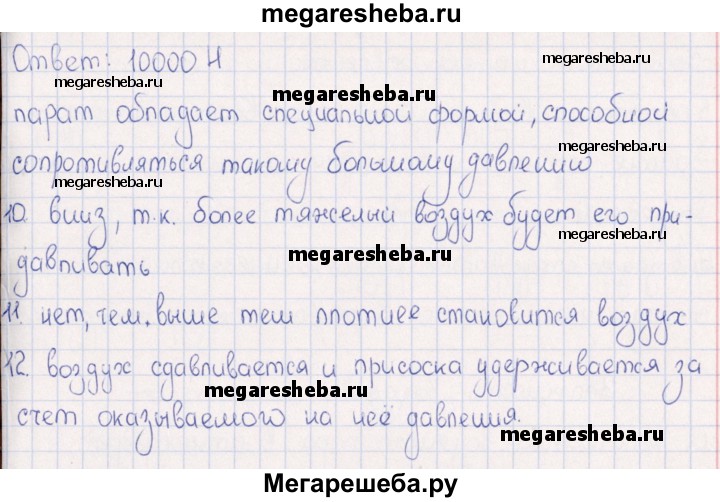 megaresheba.ru
Ответ: 10000 Н
megaresheba.ru
megaresheba.ru
megaresheba.ru
парат обладает специальной формой, способной
сопротивляться такому большому давлению
megaresheba.ru
megaresheba.ru
10. вниз, т.к. более тяжелый воздух будет его при-
megaresheba.ru
megaresheba.ru
давливать
11. нет, чем выше тем плотнее становится воздух
12. воздух сдавливается и присоска удерживается за
megaresheba.ru
счет оказываемого на неё давления.
megaresheba.ru
megaresheba.ru
Мегарешеба.ру